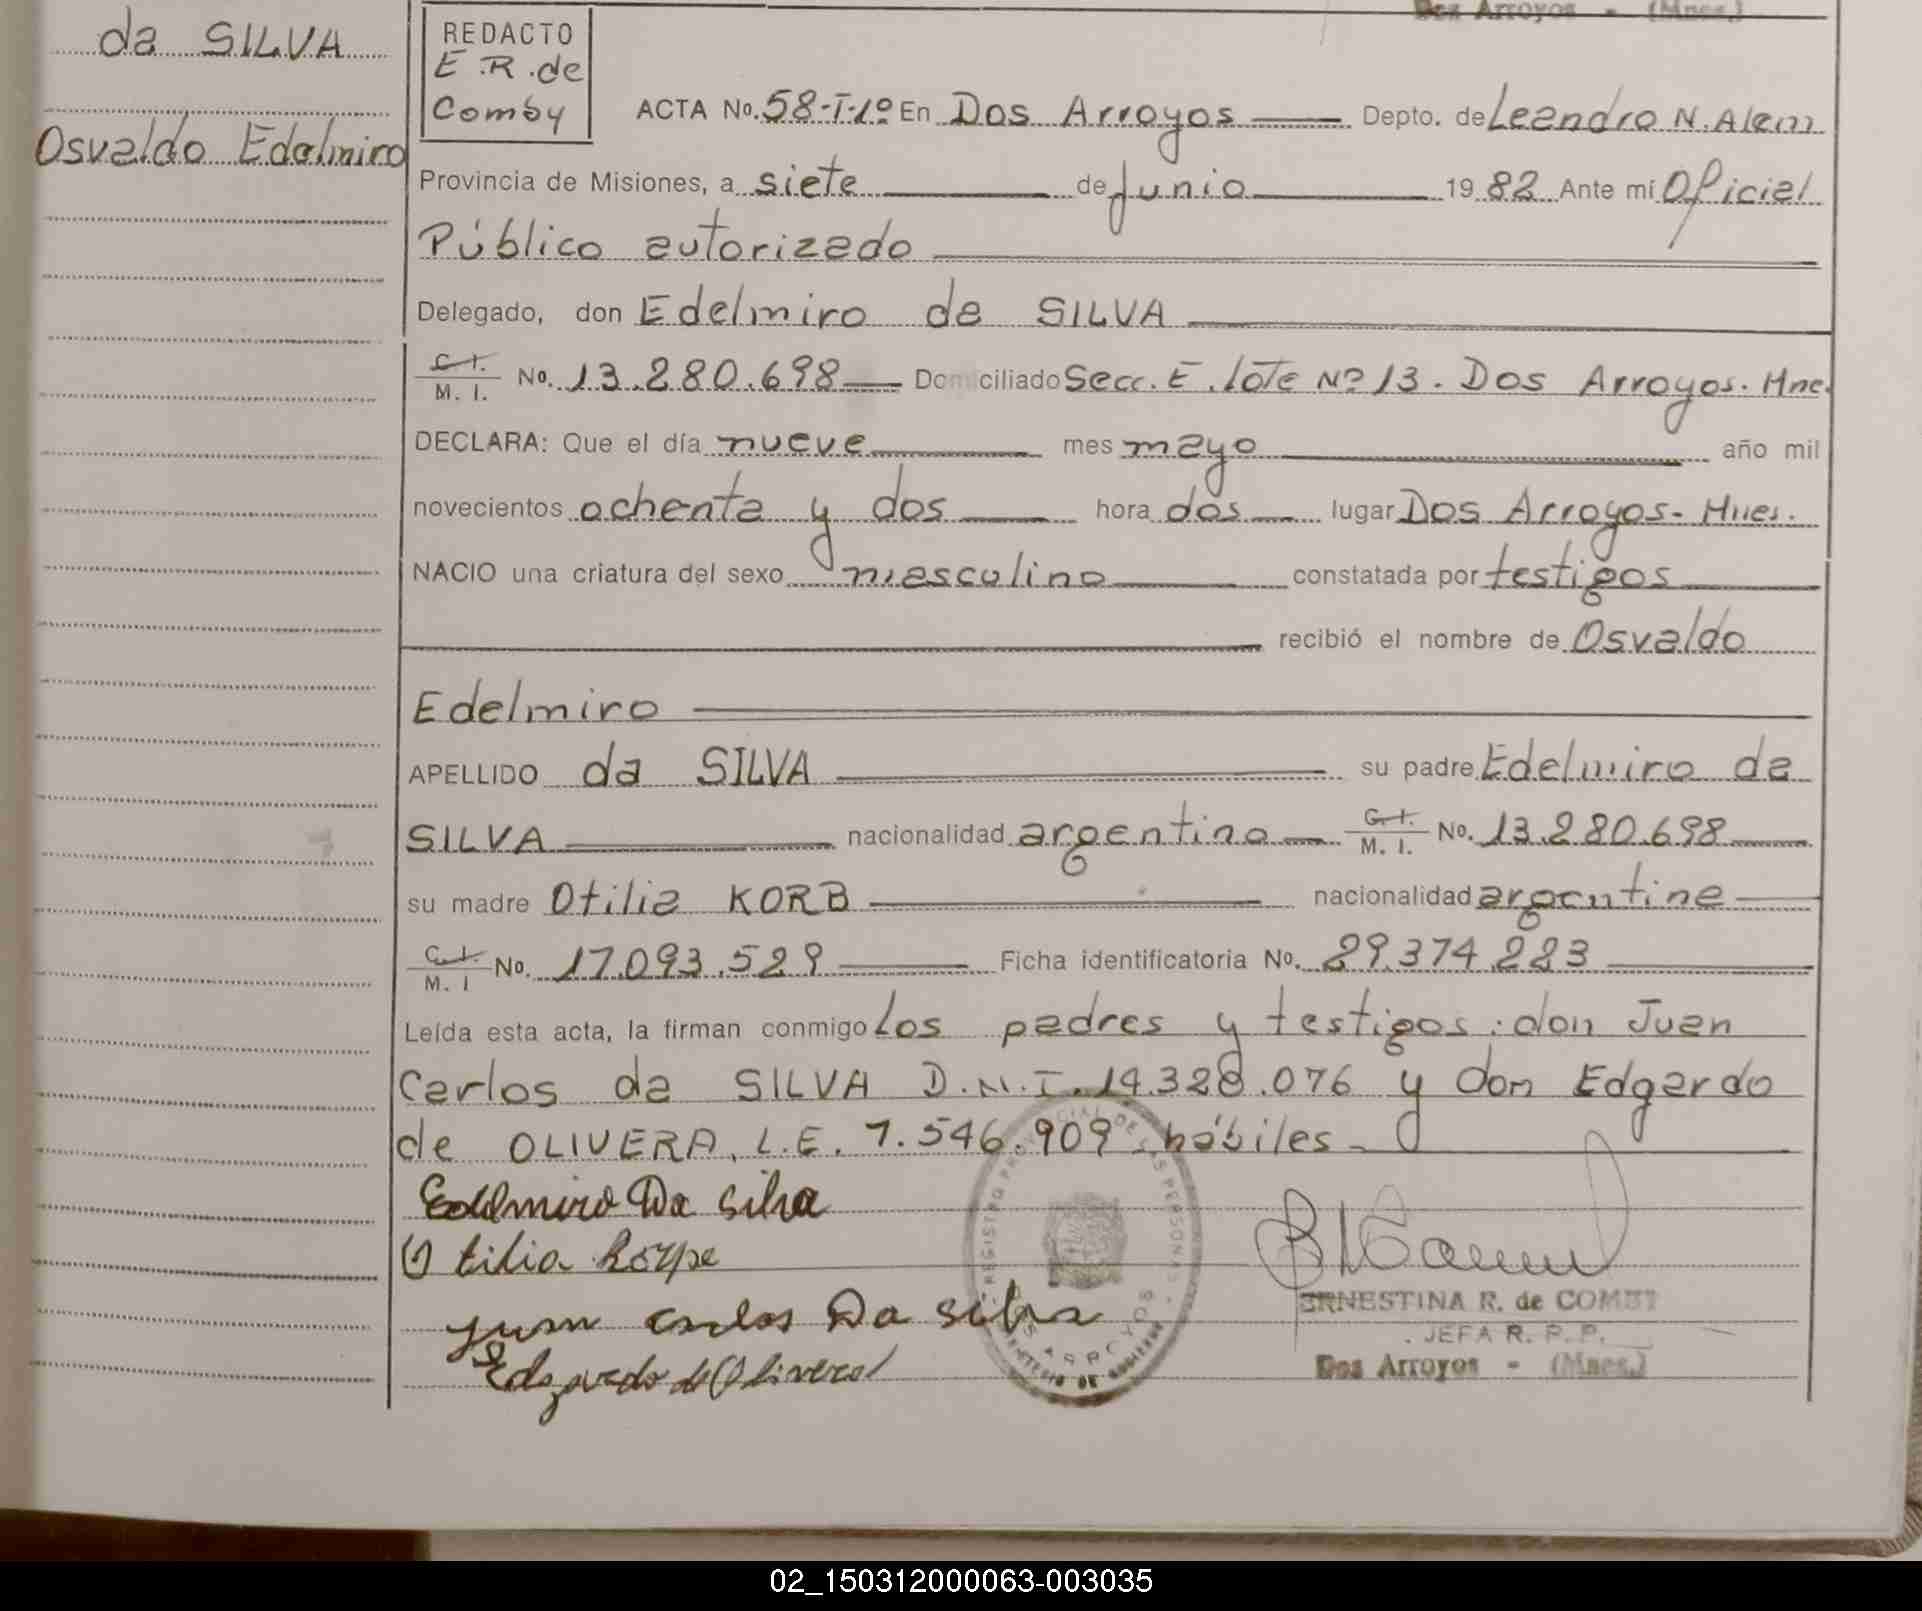 Dos Arroyos - (Mnes.)
da SILVA
Osvaldo Edelmiro
REDACTO
E.R. de
Comby
ACTA No. 58-I-1º En Dos Arroyos Depto. de Leandro N. Alem
Provincia de Misiones, a siete de junio 1982 Ante mí Oficial
Público autorizado
Delegado, don Edelmiro da SILVA
C. I.
M. I. No. 13.280.698 Domiciliado Secc. E. lote Nº 13. Dos Arroyos. Mne.
DECLARA: Que el día nueve mes mayo año mil
novecientos ochenta y dos hora dos lugar Dos Arroyos- Mnes.
NACIO una criatura del sexo masculino constatada por testigos
recibió el nombre de Osvaldo
Edelmiro
APELLIDO da SILVA su padre Edelmiro da
SILVA nacionalidad argentina C. I. M. I. No. 13.280.698
su madre Otilia KORB nacionalidad argentina
C. I.
M. I No. 17.093.529 Ficha identificatoria No. 29.374.223
Leída esta acta, la firman conmigo Los padres y testigos: don Juan
Carlos da SILVA D.N.I. 14.328.076 y don Edgardo
de OLIVERA, L.E. 7.546.909 hábiles-
Edelmiro Da Silva
Otilia
Juan Carlos Da Silva
Edgardo de Olivera
REGISTRO PROVINCIAL DE LAS PERSONAS
DOS ARROYOS
MINISTERIO DE GOBIERNO
ERNESTINA R. de COMBY
JEFA R. P. P.
Dos Arroyos - (Mnes.)
02_150312000063-003035